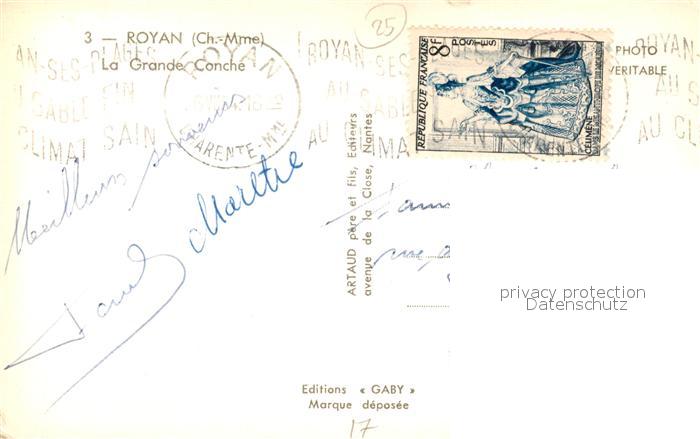 3 — ROYAN (Ch.-Mme)
La Grande Conche
25
ROYAN
ARENTE-MME
AN-SES-PLAGES
SABLE FIN
CLIMAT SAIN
ROYAN-SES
AU S
AU CLIMAT SAIN
ROYAN
AU S
AU CL
RÉPUBLIQUE FRANÇAISE
8F
POSTES
CÉLIMÈNE
PHOTO
VERITABLE
Meilleurs souvenirs
Marthe
ARTAUD père et Fils, Editeurs
avenue de la Close, Nantes
privacy protection
Datenschutz
Editions « GABY »
Marque déposée
17